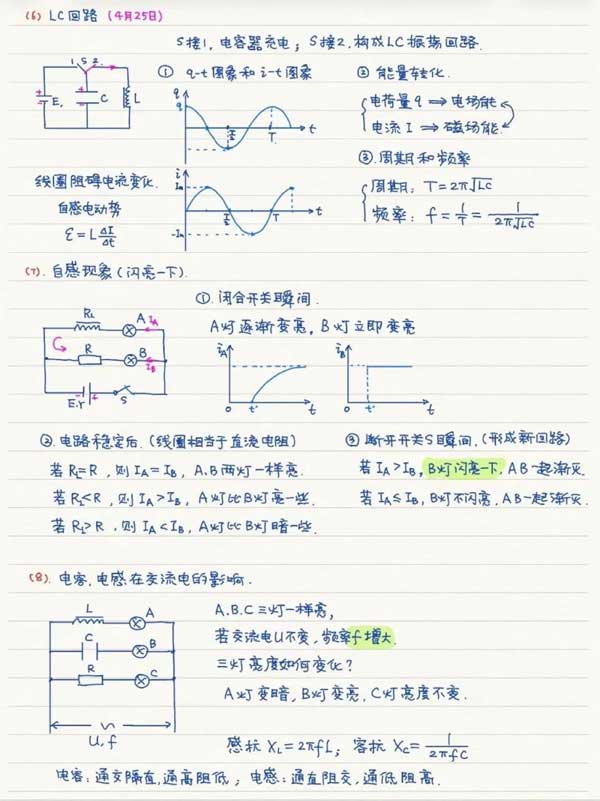 (6) LC回路 (4月25日)
S接1,电容器充电;S接2,构成LC振荡回路.
1. S 2.
E. C L
① q-t图象和i-t图象
q
q
T/2 T t
② 能量转化.
电荷量q ⟹ 电场能
电流I ⟹ 磁场能.
③.周期和频率
周期: T=2π√LC
频率: f=1/T=1/2π√LC
线圈阻碍电流变化.
自感电动势
ε=LΔI/Δt
i
Im
T/2 T t
-Im
(7).自感现象(闪亮一下).
RL A IA
R B IB
E.r S
①.闭合开关瞬间.
A灯逐渐变亮,B灯立即变亮
iA
0 t' t
iB
0 t' t
②.电路稳定后.(线圈相当于直流电阻)
若RL=R,则IA=IB,A.B两灯一样亮.
若RL<R,则IA>IB,A灯比B灯亮一些.
若RL>R,则IA<IB,A灯比B灯暗一些.
③ 断开开关S瞬间.(形成新回路)
若IA>IB,B灯闪亮一下,AB一起渐灭.
若IA≤IB,B灯不闪亮,AB一起渐灭.
(8).电容,电感在交流电的影响.
L A
C B
R C
~
U,f
A.B.C三灯一样亮,
若交流电U不变,频率f增大.
三灯亮度如何变化?
A灯变暗,B灯变亮,C灯亮度不变.
感抗XL=2πfL; 容抗XC=1/2πfC
电容:通交隔直,通高阻低;电感:通直阻交,通低阻高.